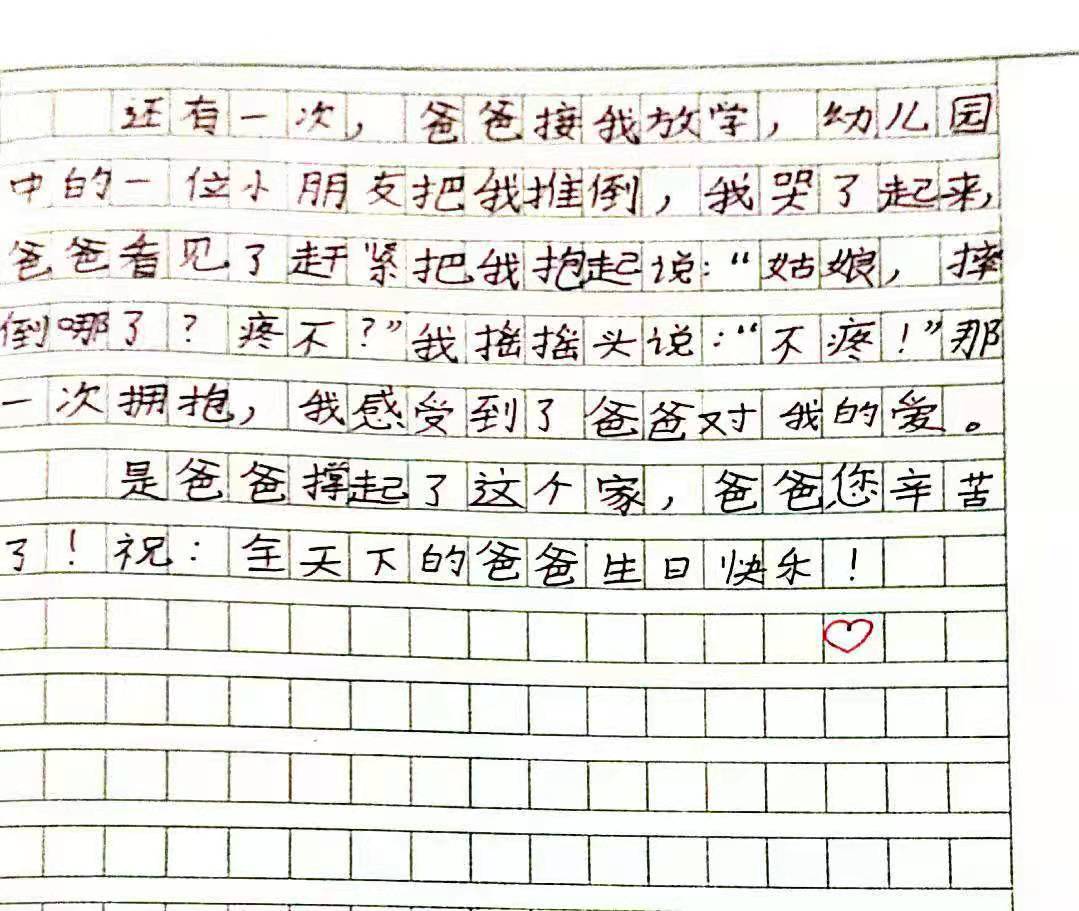 还有一次，爸爸接我放学，幼儿园
中的一位小朋友把我推倒，我哭了起来，
爸爸看见了赶紧把我抱起说：“姑娘，摔
倒哪了？疼不？”我摇摇头说：“不疼！”那
一次拥抱，我感受到了爸爸对我的爱。
是爸爸撑起了这个家，爸爸您辛苦
了！祝：全天下的爸爸生日快乐！